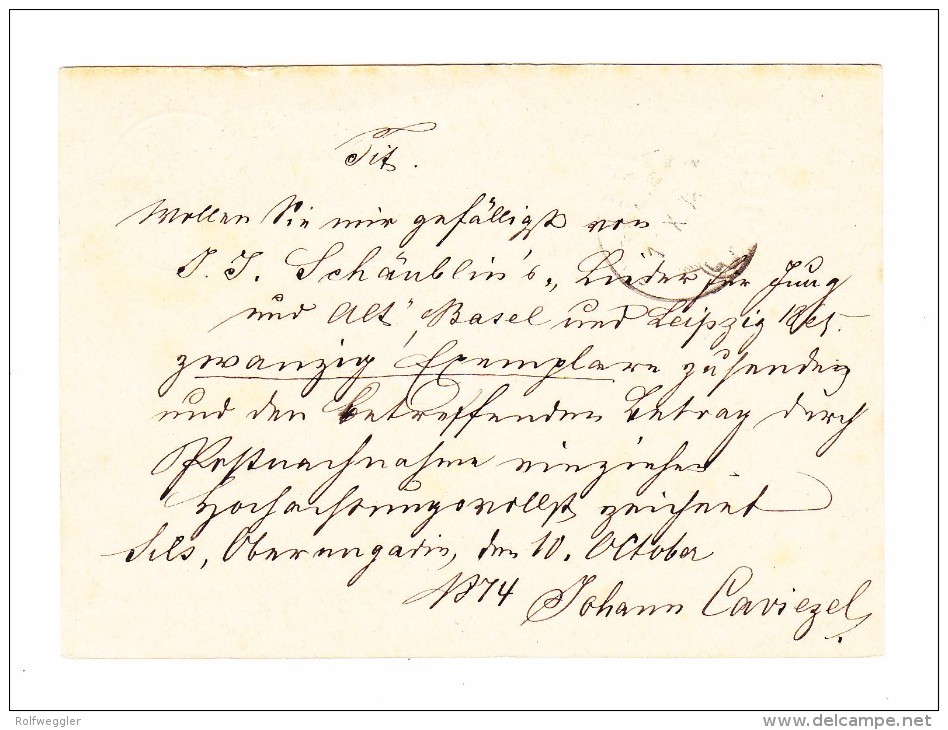 Tit.
Wollen Sie mir gefälligst von
J. J. Schäublin's „Lieder für Jung
und Alt", Basel und Leipzig
zwanzig Exemplare zusenden
und den betreffenden Betrag durch
Postnachnahme einziehen.
Hochachtungsvollst zeichnet
Sils, Oberengadin, den 10. October
1874 Johann Caviezel.
Rolfweggler
www.delcampe.net